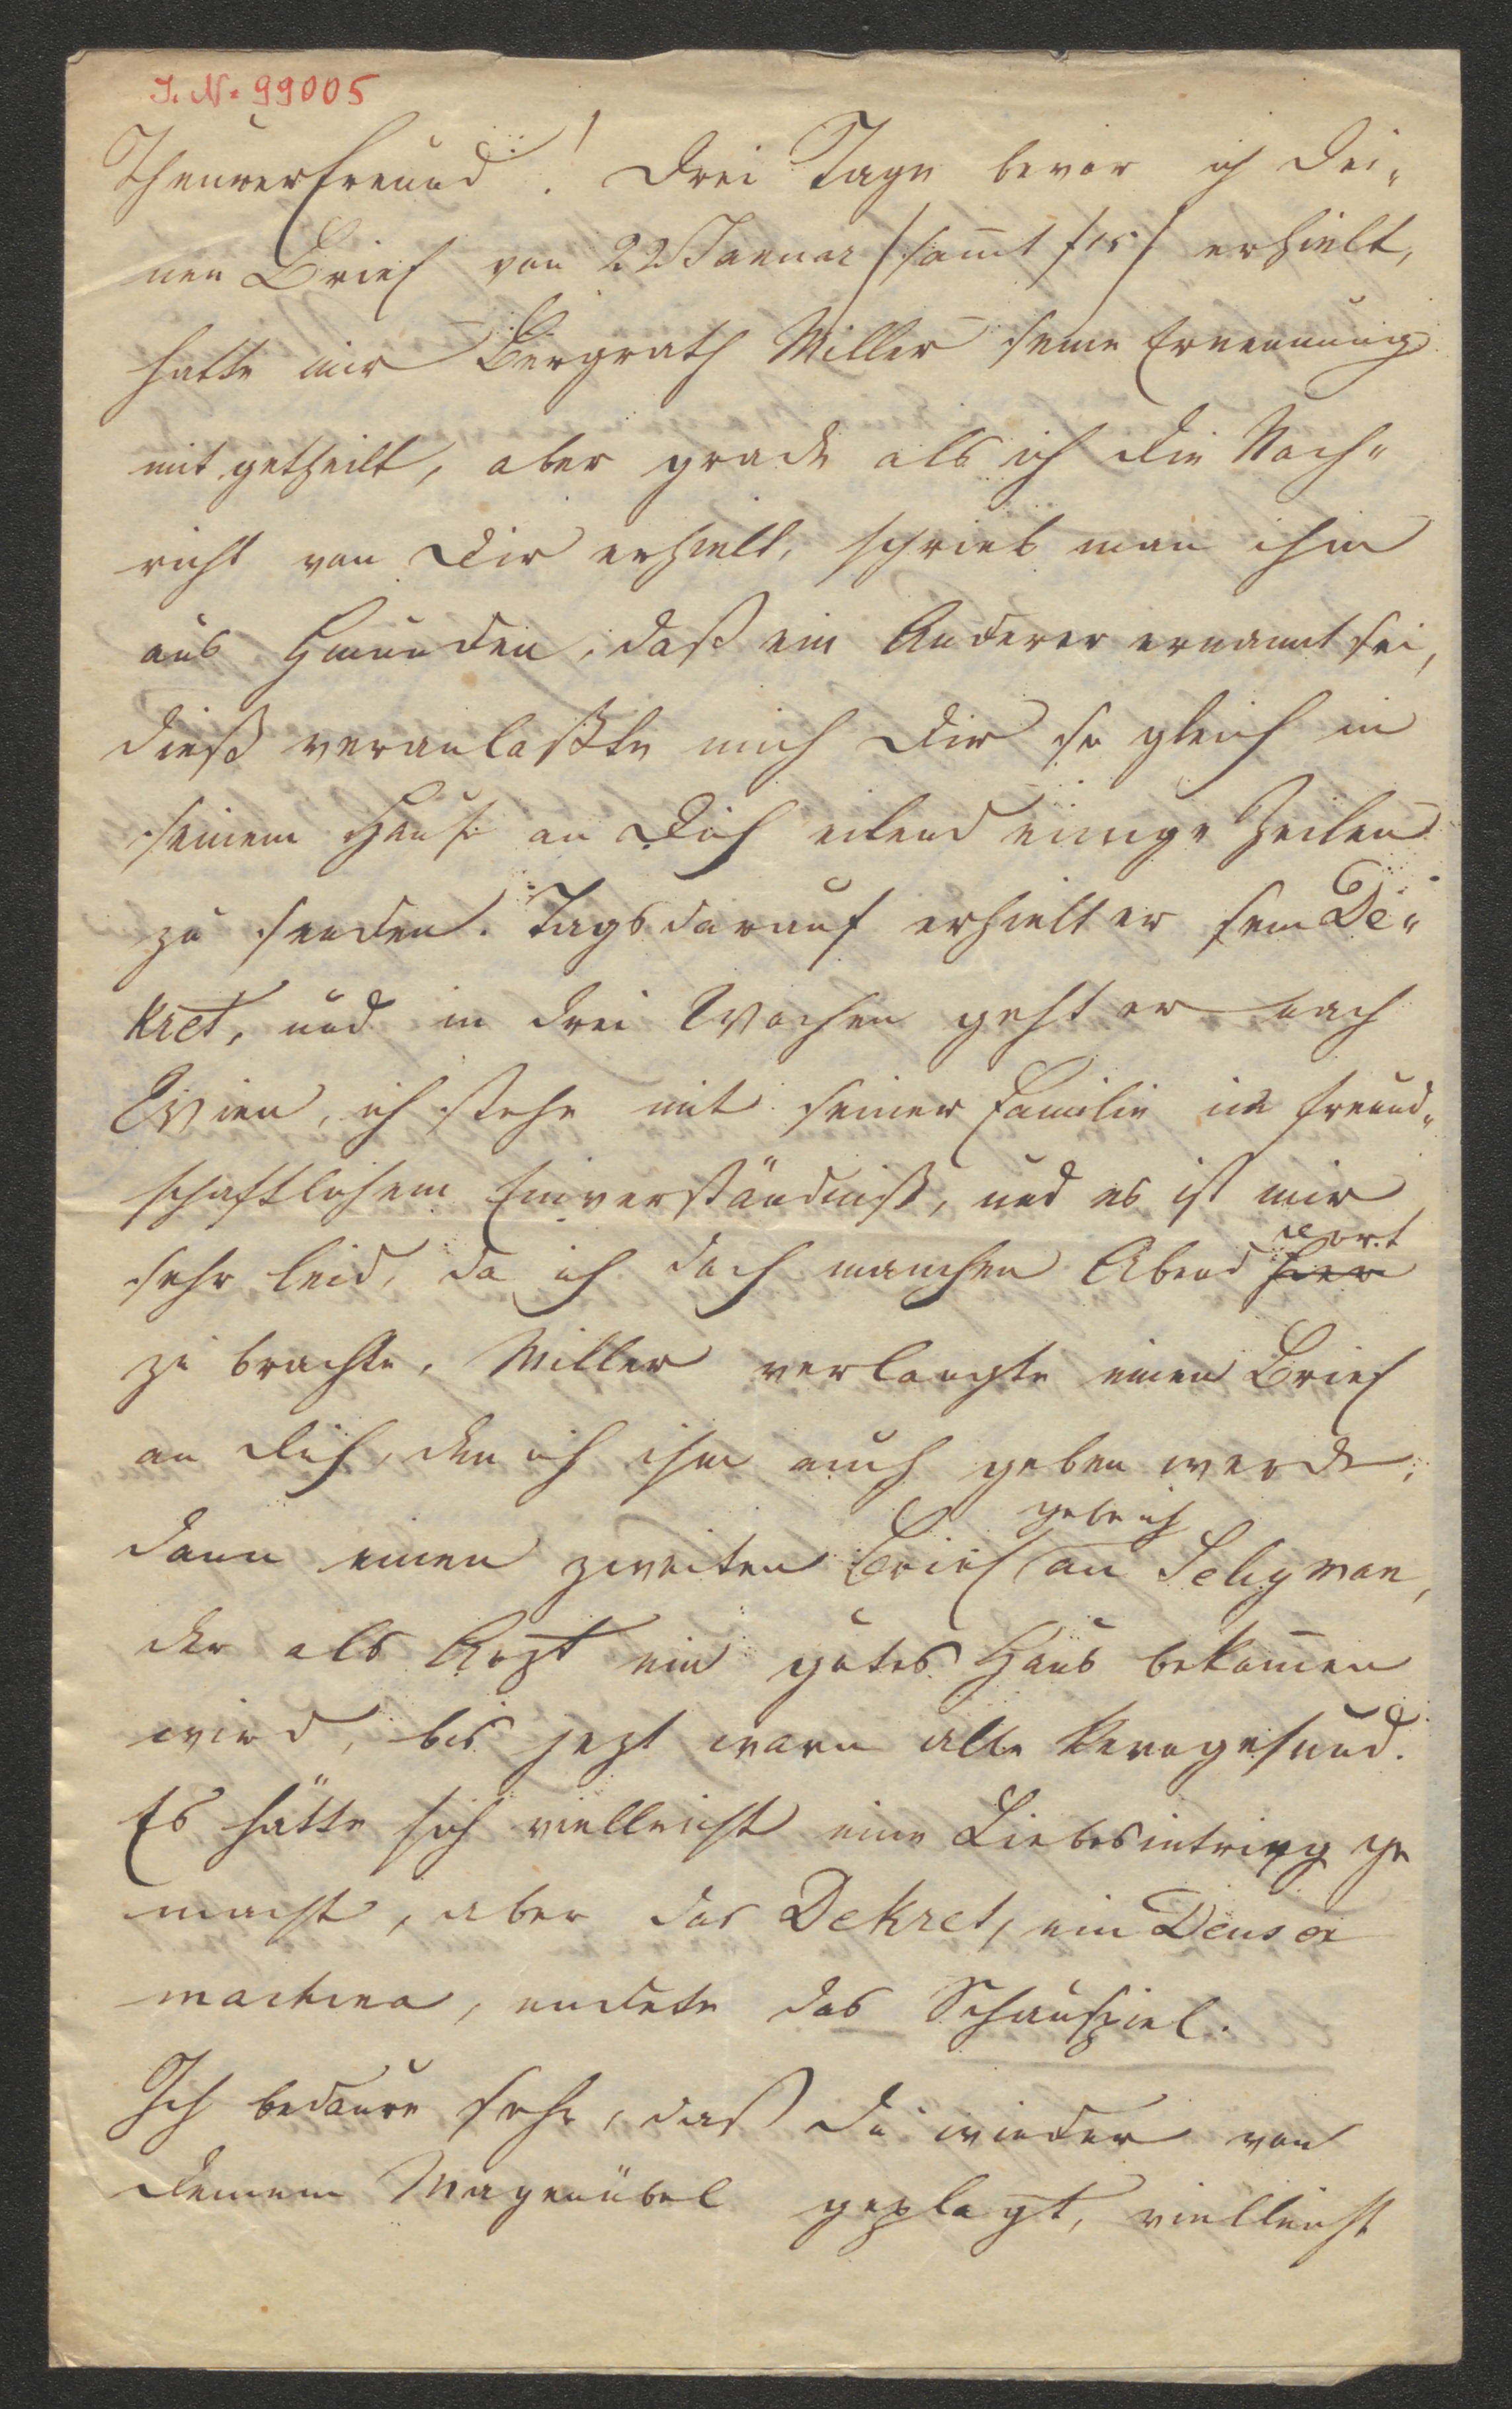 I. N. 99005
Theurer Freund! Drei Tage bevor ich Dei„
nen Brief von 22 Januar /sam̄t f 15/ erhielt,
hatte mir Bergrath Miller seine Ernennung
mit getheilt, aber grade als ich die Nach„
richt von Dir erhielt, schrieb man ihm
aus Gmunden, daß ein Anderer ernannt sei,
dieß veranlaßte mich Dir so gleich in
seinem Hause an Dich eilend einige Zeilen
zu senden. Tags darauf erhielt er sein De„
kret, und in drei Wochen geht er nach
Wien, ich stehe mit seiner Familie in freund„
schaftlichem Einverständniß, und es ist mir
sehr leid, da ich doch manchen Abend hier dort
zu brachte, Miller verlangte einen Brief
an Dich, den ich ihm auch geben werde,
dann einen zweiten Brief gebe ich an Seligman,
der als Arzt ein gutes Haus bekom̄en
wird, bis jezt warn alle kerngesund.
Es hätte sich vielleicht eine Liebesintrigg ge
macht, aber das Dekret, ein Deus ex
machina, endete das Schauspiel.
Ich bedaure sehr, daß du wieder von
deinem Magenübel geplagt, vielleicht